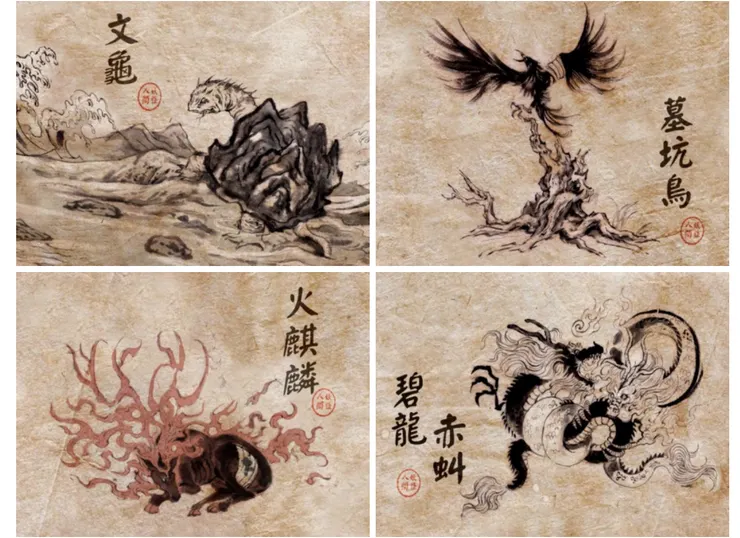 文龜
墓坑鳥
火麒麟
碧龍
赤虯